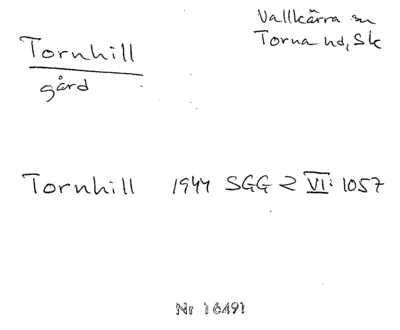 Tornhill
gård
Vallkärra sn
Torna hd, Sk
Tornhill 1944 SGG 2 VI: 1057
Nr 16491